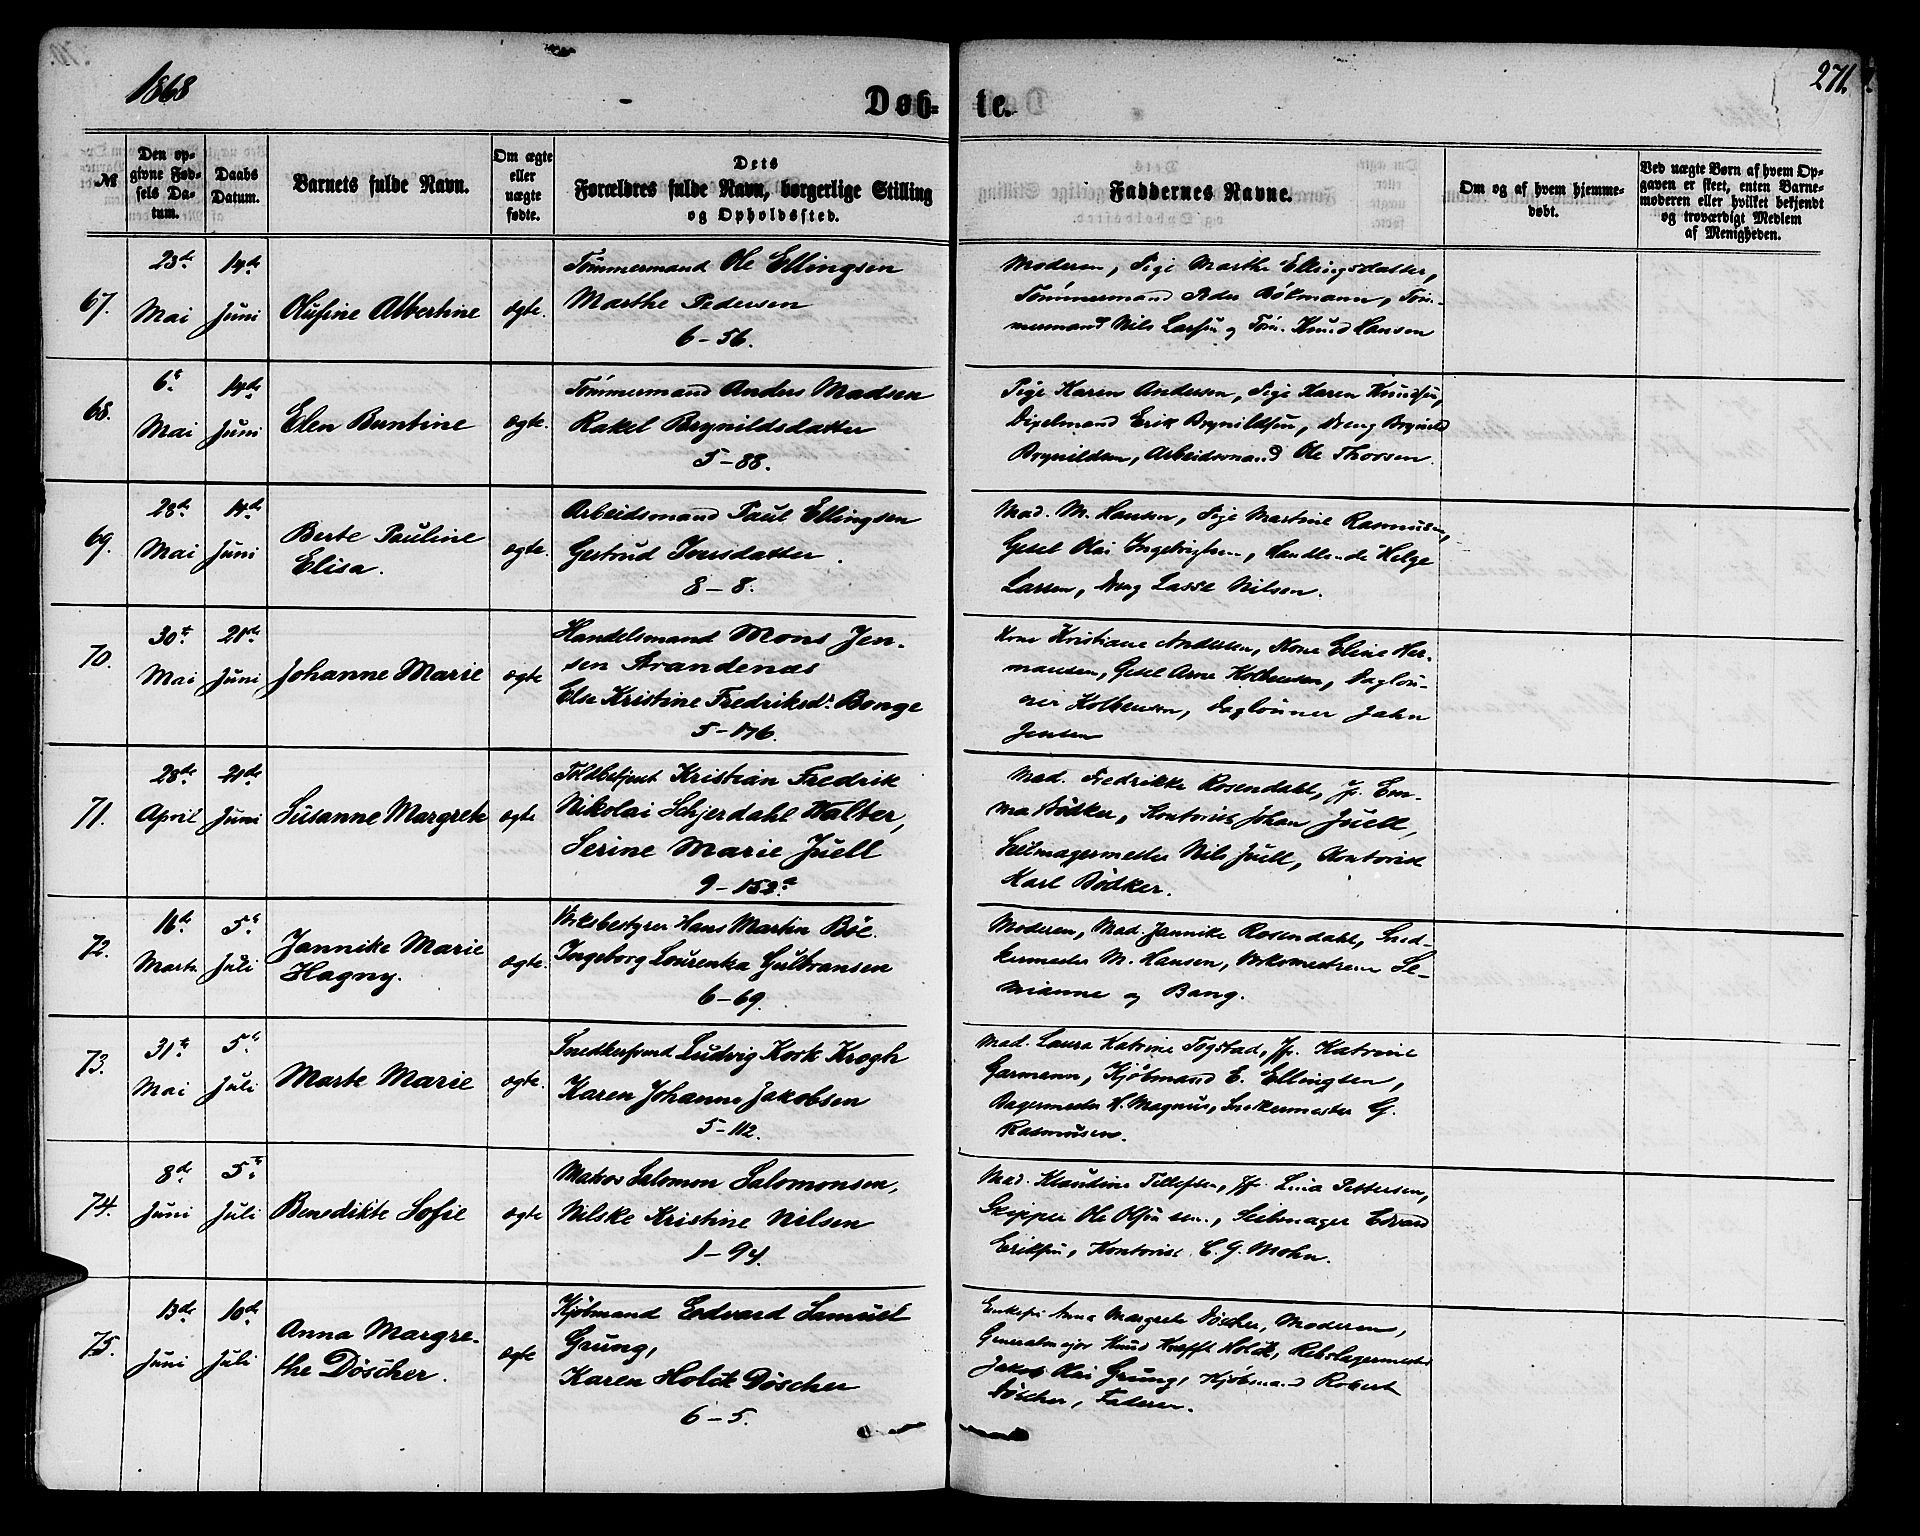 1868
Døb- te.
271.
№
Den op-
givne Fød-
sels Da-
tum.
Daabs
Datum.
Barnets fulde Navn.
Om ægte
eller
uægte
fødte.
Dets
Forældres fulde Navn, borgerlige Stilling
og Opholdssted.
Faddernes Navne.
Om og af hvem hjemme-
døbt.
Ved uægte Børn af hvem Op-
gaven er skeet, enten Barne-
moderen eller hvilket bekjendt
og troværdigt Medlem
af Menigheden.
67.
23de
Mai
14de
Juni
Olufine Albertine
ægte.
Tømmermand Ole Ellingsen
Marthe Pedersen
6-56.
Moderen, Pige Marthe Ellingsdatter,
Tømmermand Peder Bökmann, Tøm-
mermand Nils Larsen og Tøm. Knud Hansen
68.
6te
Mai
14de
Juni
Elen Buntine
ægte.
Tømmermand Anders Madsen
Rakel Brynildsdatter
5-88.
Pige Karen Andersen, Pige Karen Knudsen,
Erik Brynildsen, Dreng Brynild
Brynildsen, Arbeidsmand Ole Thorsen.
69.
28de
Mai
14de
Juni
Berte Pauline
Elisa.
ægte.
Arbeidsmand Paul Ellingsen
Gertrud Iversdatter.
8-8.
Mad. M. Hansen, Pige Martine Rasmusen,
Gesel Olai Ingebrigtsen, Handlende Helge
Larsen, Dreng Lasse Nilsen.
70.
30te
Mai
21de
Juni
Johanne Marie
ægte
Handelsmand Mons Jen-
sen Strandenæs
Else Kristine Fredriksdr. Bonge
5-176.
Kone Kristiane Andersen, Kone Eline Her-
mansen, Gesel Arne Kolbensen, Dagløn-
ner Kolbensen, Daglønner John
Jensen
71.
28de
April
21de
Juni
Susanne Margrete
ægte
Toldbetjent Kristian Fredrik
Nikolai Schjerdahl Walter,
Serine Marie Juell
9-152a
Mad. Fredrikke Rosendahl, Jfr. Em-
ma Bödker, Kontorist Johan Juell,
Seilmagermester Nils Juell, Kontorist
Karl Bödker.
72.
16de
Marts
5te
Juli
Jannike Marie
Hagny.
ægte.
Hans Martin Böe.
Ingeborg Lourenka Gulbransen
6-69.
Moderen, Mad. Jannike Rosendahl, Sned-
kermester M. Hansen, Se-
mianne og Bang.
73.
31te
Mai
5te
Juli
Marte Marie
ægte.
Snedkersvend Ludvig Kork Krogh
Karen Johanne Jakobsen
5-112.
Mad. Laura Katrine Togstad, Jfr. Katrine
Garmann, Kjöbmand E. Ellingsen,
Bagermester H. Magnus, Snekermester G.
Rasmusen.
74.
8de
Juni
5te
Juli
Benedikte Sofie
ægte
Matros Salomon Salomonsen,
Nilske Kristine Nilsen
1-94.
Mad. Klaudine Tollefsen, Jfr. Lina Pettersen,
Skipper Ole Olsen, Seilmager Edvard
Eriksen, Kontorist C. G. Mohn.
75.
13de
Juni
10de
Juli
Anna Margre-
the Döscher.
ægte
Kjöbmand Eedvard Samuel
Grung,
Karen Holck Döscher
6-5.
Enkefru Anna Margrete Döscher, Moderen,
Generalmajor Knud Krafft Holck, Rebslagermester
Jakob Olai Grung, Kjöbmand Robert
Döscher, Faderen.